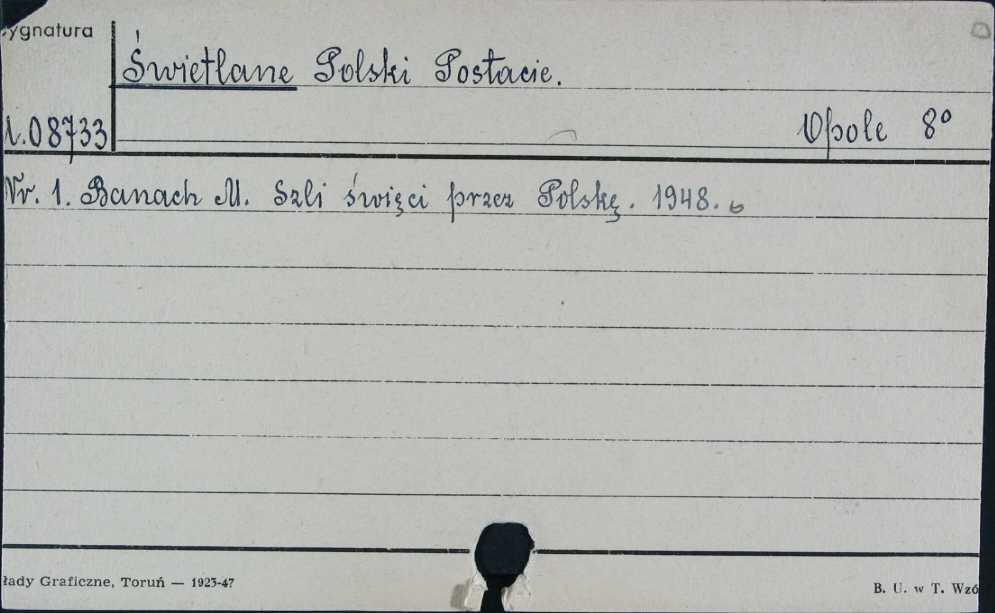 ygnatura
Świetlane Polski Postacie.
1.08733
Opole 8°
Nr. 1. Banach M. Szli święci przez Polskę. 1948.
łady Graficzne, Toruń — 1923-47
B. U. w T. Wzó